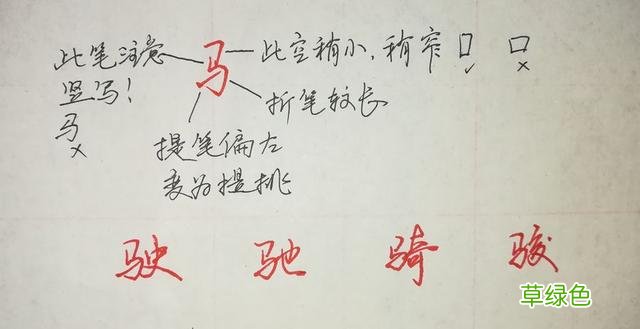 此笔注意
竖写！
马
×
马
此空稍小，稍窄
✓
×
折笔较长
提笔偏左
变为提挑
驶 驰 骑 骏
草绿色